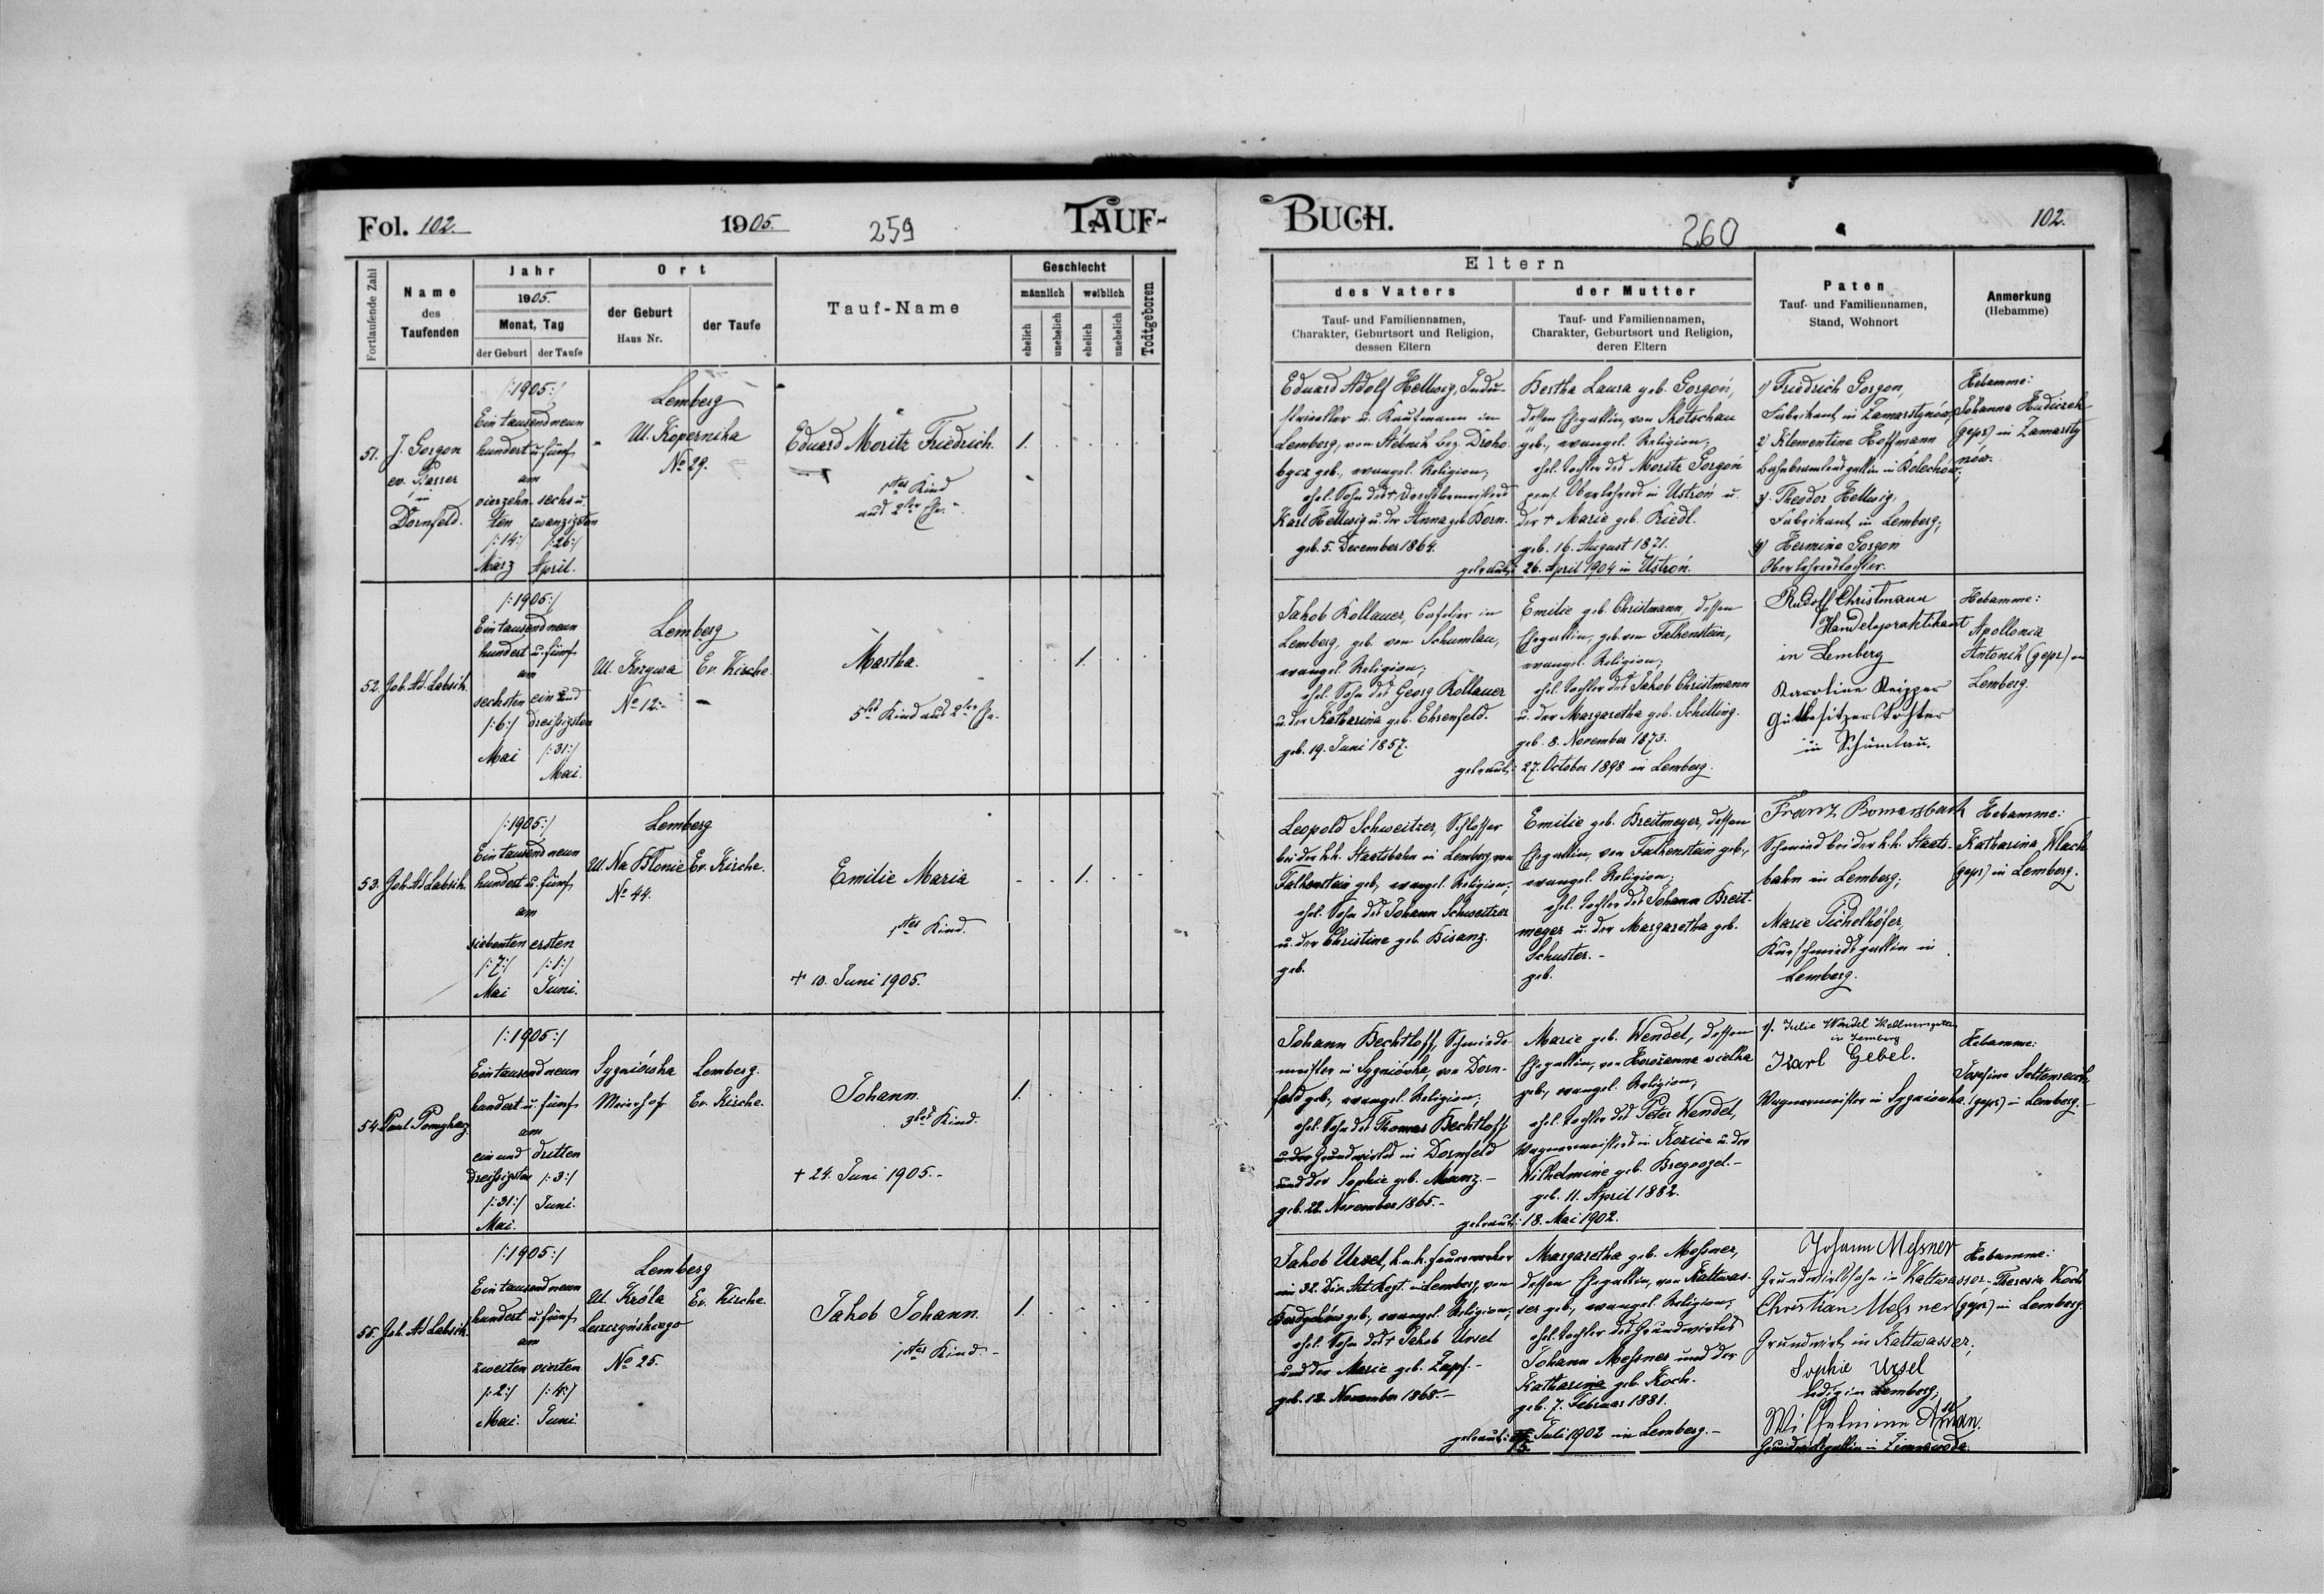 Fol. 102. 1905. 259 TAUF-
Fortlaufende Zahl
Name des Taufenden
Jahr
1905.
Monat, Tag
der Geburt der Taufe
Ort
der Geburt
Haus Nr.
der Taufe
Tauf-Name
Geschlecht
männlich weiblich
ehelich unehelich ehelich unehelich
Todtgeboren
51.
J. Gorgon
ev. Pfarrer
in
Dornfeld.
/:1905:/
Ein tausend neun
hundert u. fünf
am
vierzehn- sechs u.
ten zwanzigsten
/:14:/ /:26:/
März April.
Lemberg
Ul. Kopernika
No 29.
Eduard Moritz Friedrich.
1tes Kind
aus 2ter Ehe.
1.
52.
Joh. Ad. Labsik.
/:1905:/
Ein tausend neun
hundert u. fünf
am
sechsten ein und
/:6:/ dreißigsten
Mai /:31:/
Mai.
Lemberg
Ul. Krzywa Ev. Kirche.
No 12.
Martha.
5tes Kind aus 2ter Ehe.
1.
53.
Joh. Ad. Labsik.
/:1905:/
Ein tausend neun
hundert u. fünf
am
siebenten ersten
/:7:/ /:1:/
Mai Juni.
Lemberg
Ul. Na Błonie Ev. Kirche.
No 44.
Emilie Maria
1tes Kind.
† 10. Juni 1905.
1.
54.
Paul
/:1905:/
Ein tausend neun
hundert u. fünf
am
ein und dritten
dreißigsten /:3:/
/:31:/ Juni.
Mai.
Sygniówka Lemberg.
Meierhof Ev. Kirche.
Johann.
3tes Kind.
† 24. Juni 1905.-
1.
55.
Joh. Ad. Labsik.
/:1905:/
Ein tausend neun
hundert u. fünf
am
zweiten vierten
/:2:/ /:4:/
Mai. Juni.
Lemberg
Ul. Króla Ev. Kirche.
Leszczyńskiego
No 25.
Jakob Johann.
1tes Kind.-
1.
BUCH. 260 102.
Eltern
des Vaters
Tauf- und Familiennamen,
Charakter, Geburtsort und Religion,
dessen Eltern
der Mutter
Tauf- und Familiennamen,
Charakter, Geburtsort und Religion,
deren Eltern
Paten
Tauf- und Familiennamen,
Stand, Wohnort
Anmerkung
(Hebamme)
Eduard Adolf Hellwig, Indu-
strieller u. Kaufmann in
Lemberg, von Stebnik bez. Droho-
bycz geb., evangel. Religion,
ehel. Sohn des †
Karl Hellwig u. der Anna geb. Korn.
geb. 5. December 1864.
Bertha Laura geb. Gorgoń,
dessen Ehegattin, von Skotschau
geb., evangel. Religion,
ehel. Tochter des Moritz Gorgoń
pens. Oberlehrers in Ustroń u.
der † Marie geb. Riedl.
geb. 16. August 1871.
getraut: 26. April 1904 in Ustroń.
1) Friedrich Gorgon,
Fabrikant in Zamarstynów,
2) Klementine Hoffmann
Bahnbeamtensgattin in Bolechów,
3) Theodor Hellwig,
Fabrikant in Lemberg,
4) Hermine Gorgon
Oberlehrerstochter.
Hebamme:
Johanna
(gepr) in Zamarsty-
nów.
Jakob Kollauer, in
Lemberg, geb. von Schumlau,
evangel. Religion,
ehel. Sohn des Georg Kollauer
u. der Katharina geb. Ehrenfeld.
geb. 19. Juni 1857.
Emilie geb. Christmann, dessen
Ehegattin, geb. von Falkenstein,
evangel. Religion,
ehel. Tochter des Jakob Christmann
u. der Margaretha geb. Schilling.
geb. 8. November 1873.
getraut: 27. October 1898 in Lemberg.
Rudolf Christmann
Handelspraktikant
in Lemberg
Karoline Kripper
Gutbesitzers Tochter
in Schumlau.
Hebamme:
Apollonia
Antonik (gepr) in
Lemberg.
Leopold Schweitzer, Schlosser
bei der k.k. Staatsbahn in Lemberg, von
Falkenstein geb., evangel. Religion,
ehel. Sohn des Johann Schweitzer
u. der Christine geb. Bisanz.
geb.
Emilie geb. Breitmeyer, dessen
Ehegattin, von Falkenstein geb.,
evangel. Religion,
ehel. Tochter des Johann Breit-
meyer u. der Margaretha geb.
Schuster.-
geb.
Franz Romersbach
Schmied bei der k.k. Staats-
bahn in Lemberg;
Marie Pichelhöfer,
Kurschmiedsgattin in
Lemberg.
Hebamme:
Katharina Wlach
(gepr) in Lemberg.
Johann Bechtloff, Schmiede-
meister in Sygniówka, von Dorn-
feld geb., evangel. Religion,
ehel. Sohn des Thomas Bechtloff
u. der Grundwirtes in Dornfeld
und der Sophie geb. Manz.-
geb. 22. November 1865.-
Marie geb. Wendel, dessen
Ehegattin, von Horożanna wielka
geb., evangel. Religion,
ehel. Tochter des Peter Wendel,
Wagnermeisters in Kozice u. der
Wilhelmine geb.
geb. 11. April 1882.
getraut: 18. Mai 1902.
1). Julie Wendel
in Lemberg
Karl Gebel.
Wagnermeister in Sygniówka.
Hebamme:
Josefine
(gepr) in Lemberg.
Jakob Ursel, k.u.k.
im 32. Div. Art. Regt. in Lemberg, von
geb., evangel. Religion,
ehel. Sohn des † Jakob Ursel
und der Marie geb. Zapf.-
geb. 12. November 1868.-
Margaretha geb. Meßner,
dessen Ehegattin, von Kaltwas-
ser geb., evangel. Religion,
ehel. Tochter des Grundwirtes
Johann Meßner und der
Katharina geb. Koch.
geb. 7. Februar 1881.
getraut: Juli 1902 in Lemberg.-
Johann Meßner
Grundwirtssohn in Kaltwasser.-
Christian Meßner
Grundwirt in Kaltwasser,
Sophie Ursel
ledig in Lemberg,
Wilhelmine
Grundwirtsgattin in Zimnawoda.
Hebamme:
Theresia Koch
(gepr) in Lemberg.